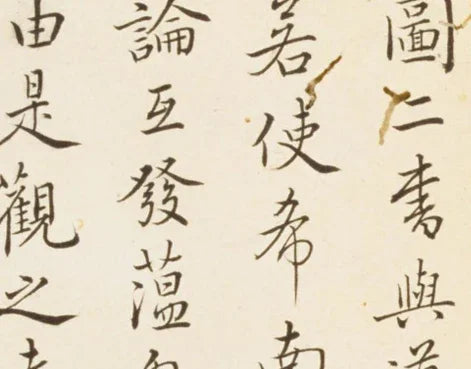 圖二書與
若使希南
論互發薀
由是觀之